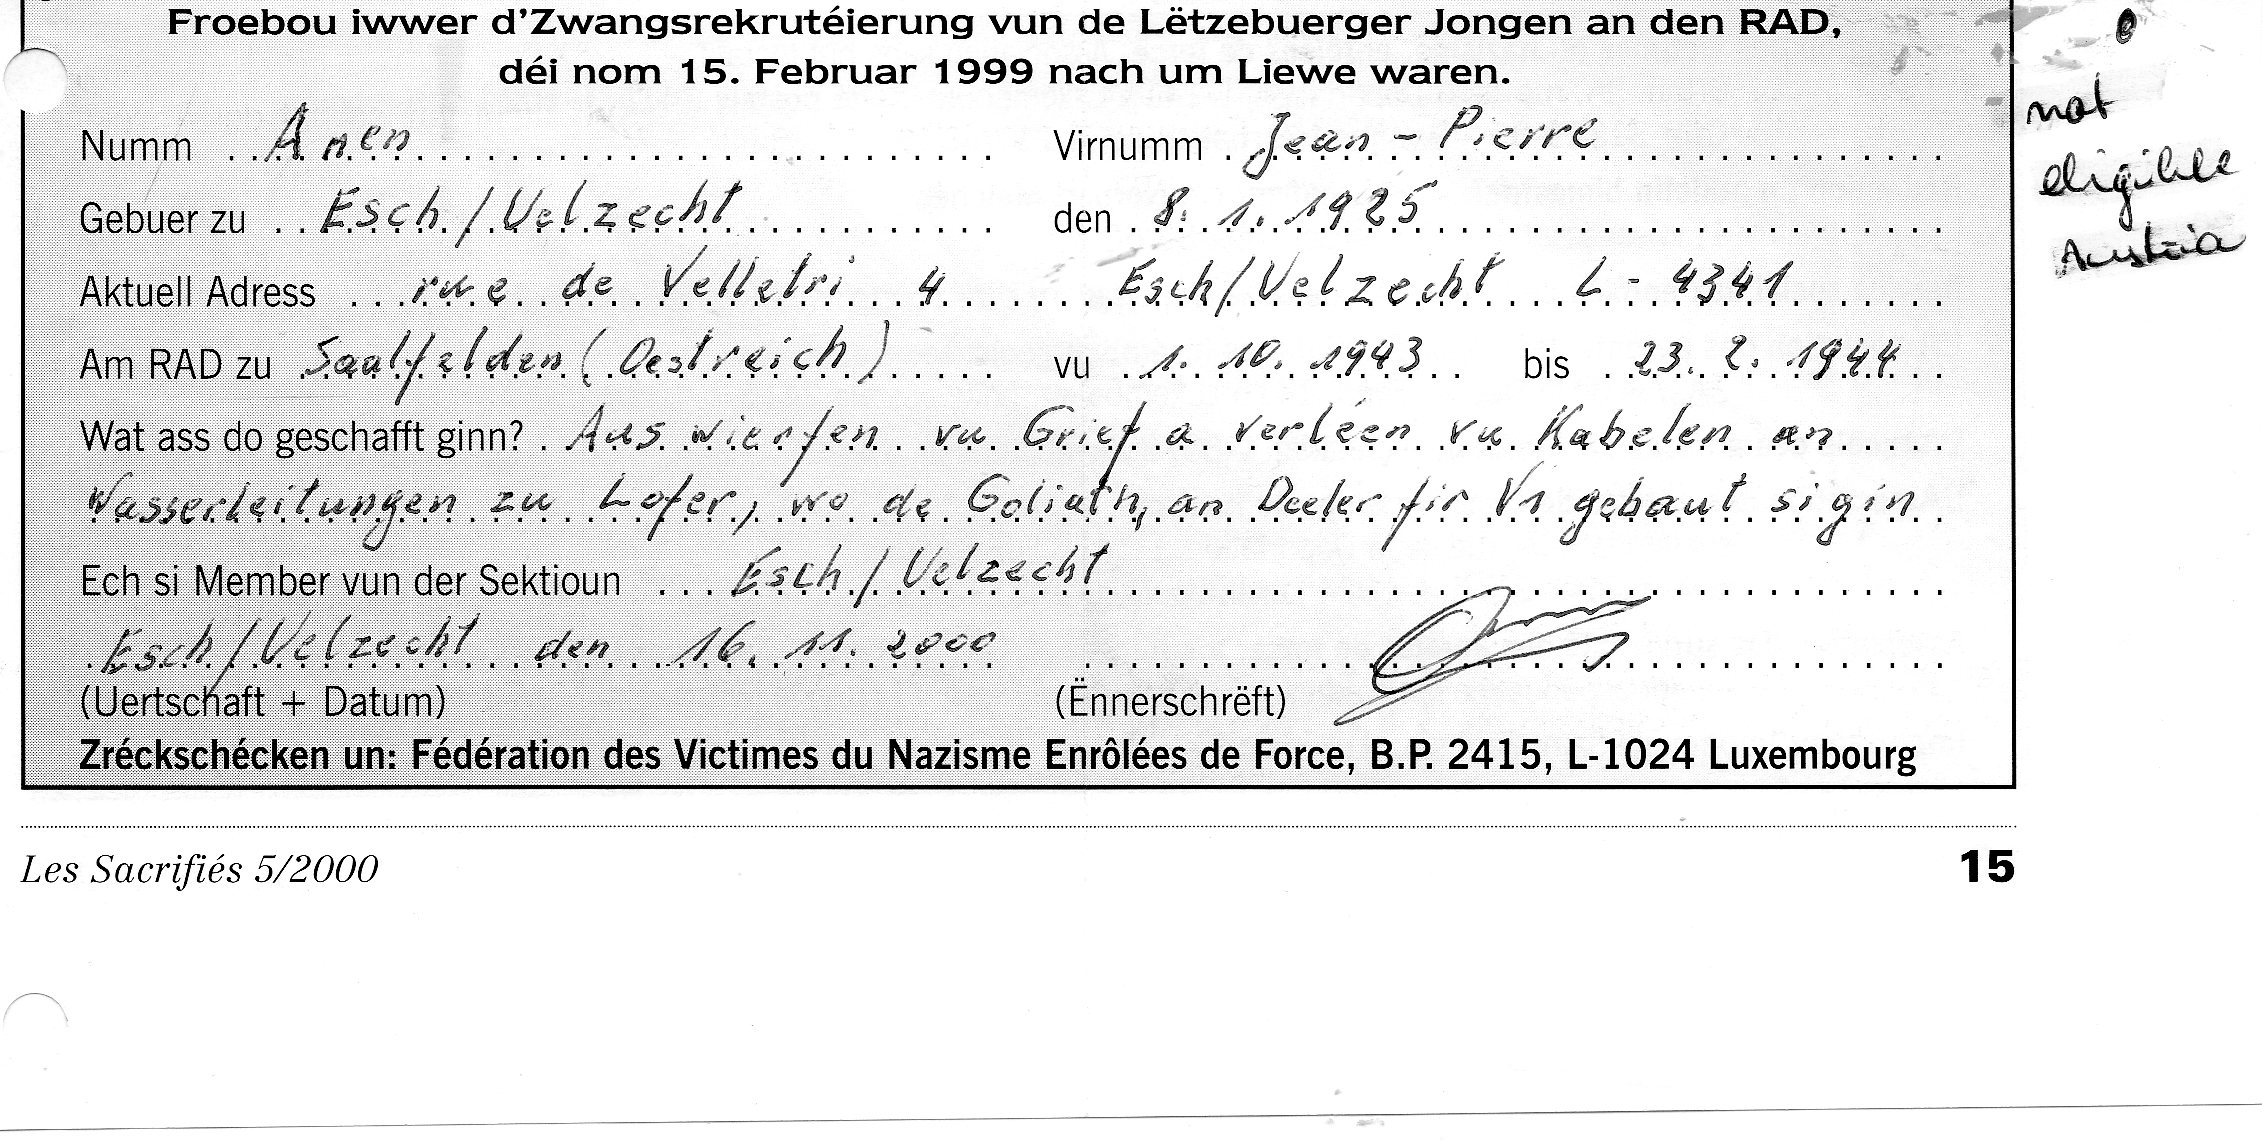 Froebou iwwer d'Zwangsrekrutéierung vun de Lëtzebuerger Jongen an den RAD,
déi nom 15. Februar 1999 nach um Liewe waren.
Numm Anen Virnumm Jean-Pierre
Gebuer zu Esch/Uelzecht den 8. 1. 1925
Aktuell Adress rue de Velletri 4 Esch/Uelzecht L-4341
Am RAD zu Saalfelden (Oestreich) vu 1. 10. 1943 bis 23. 2. 1944
Wat ass do geschafft ginn? Auswierfen vu Grief a verléen vu Kabelen an
Wasserleitungen zu Lofer, wo de Goliath, an Deeler fir V1 gebaut si gin
Ech si Member vun der Sektioun Esch/Uelzecht
Esch/Uelzecht den 16. 11. 2000
(Uertschaft + Datum) (Ënnerschrëft)
Zréckschécken un: Fédération des Victimes du Nazisme Enrôlées de Force, B.P. 2415, L-1024 Luxembourg
Les Sacrifiés 5/2000 15
not
eligible
Austria